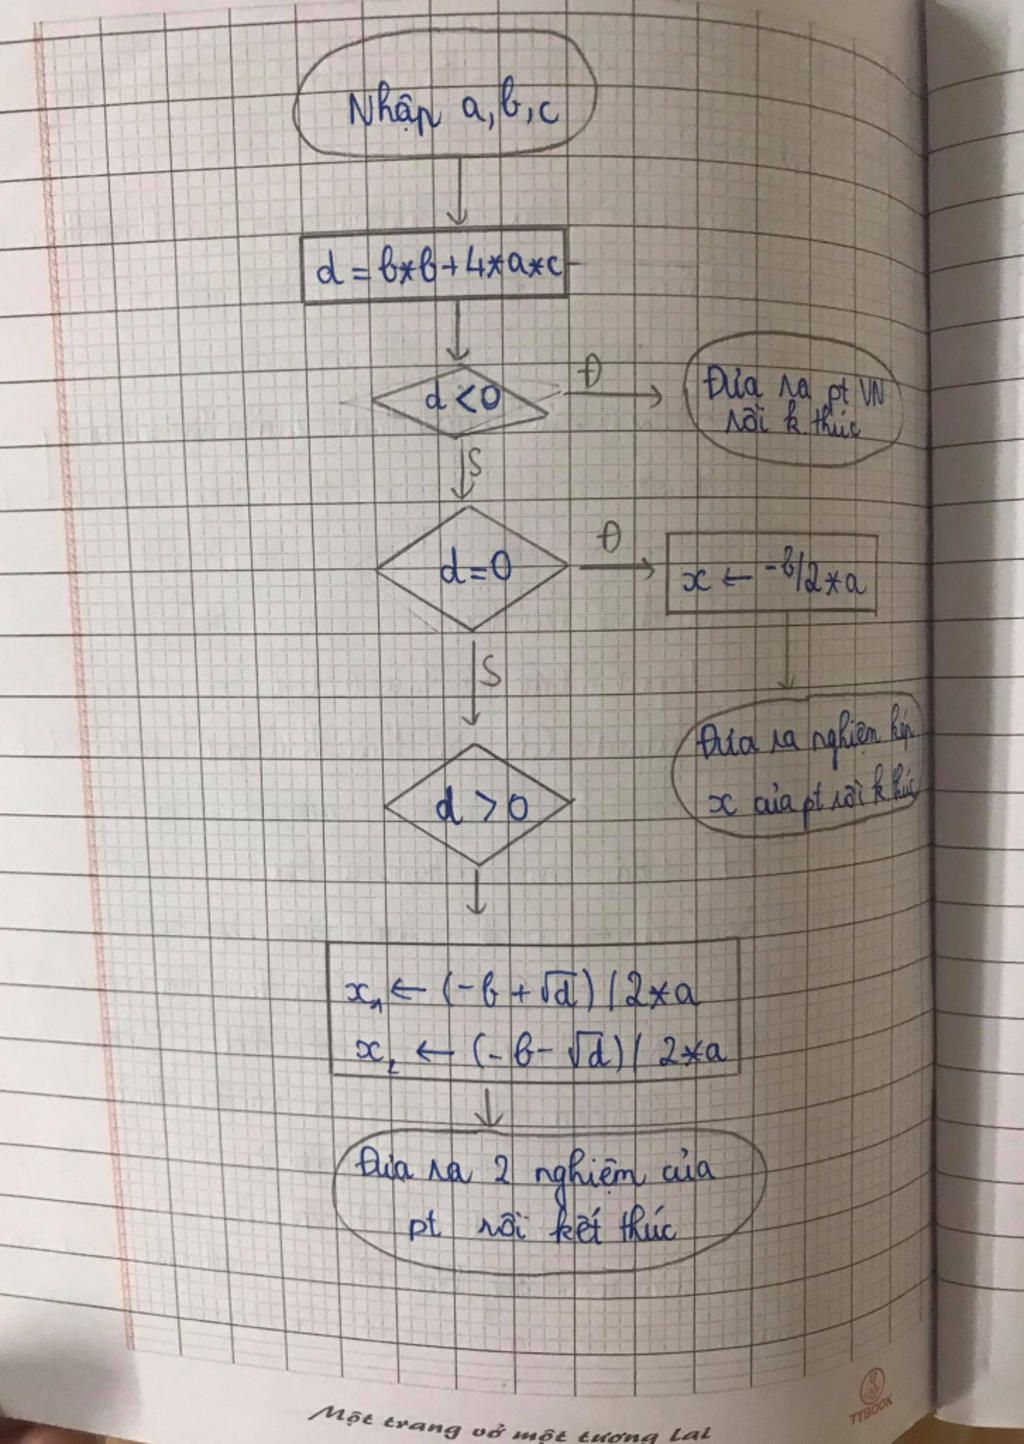 Nhập a, b, c
d = b*b+4*a*c
d<0
Đ
Đưa ra pt VN
rồi k thúc
S
d=0
Đ
x ← -b/2*a
S
Đưa ra nghiệm kép
x của pt rồi k thúc
d >0
x₁ ← (-b+√d) / 2*a
x₂ ← (-b-√d) / 2*a
Đưa ra 2 nghiệm của
pt rồi kết thúc
Một trang vở một tương lai
TTBOOK